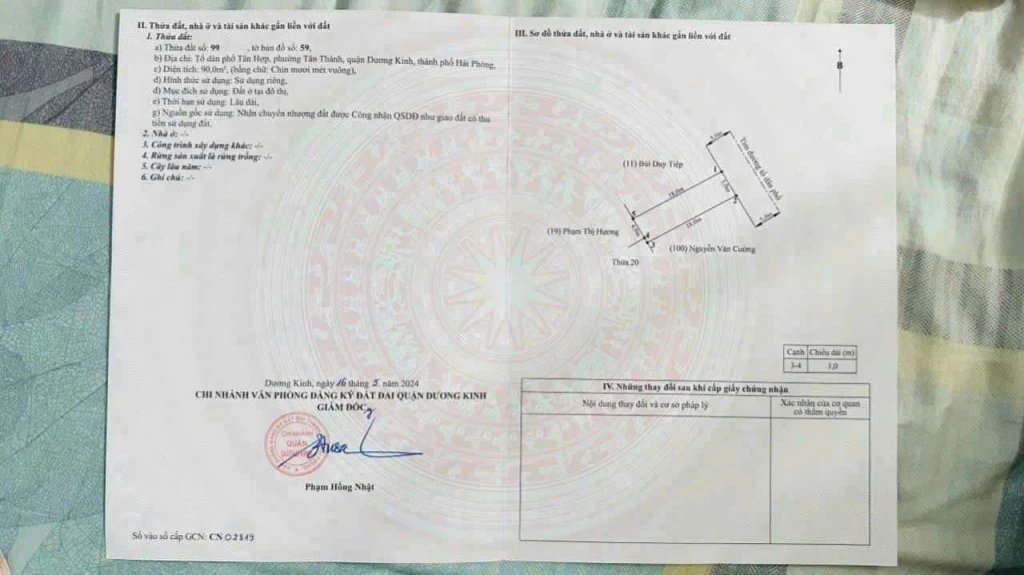 II. Thửa đất, nhà ở và tài sản khác gắn liền với đất
1. Thửa đất:
a) Thửa đất số: 99 , tờ bản đồ số: 59,
b) Địa chỉ: Tổ dân phố Tân Hợp, phường Tân Thành, quận Dương Kinh, thành phố Hải Phòng,
c) Diện tích: 90,0m², (bằng chữ: Chín mươi mét vuông),
d) Hình thức sử dụng: Sử dụng riêng,
đ) Mục đích sử dụng: Đất ở tại đô thị,
e) Thời hạn sử dụng: Lâu dài,
g) Nguồn gốc sử dụng: Nhận chuyển nhượng đất được Công nhận QSDĐ như giao đất có thu
tiền sử dụng đất.
2. Nhà ở: -/-
3. Công trình xây dựng khác: -/-
4. Rừng sản xuất là rừng trồng: -/-
5. Cây lâu năm: -/-
6. Ghi chú: -/-
Dương Kinh, ngày 16 tháng 5. năm 2024
CHI NHÁNH VĂN PHÒNG ĐĂNG KÝ ĐẤT ĐAI QUẬN DƯƠNG KINH
GIÁM ĐỐC
CHI NHÁNH
QUẬN
DƯƠNG KINH
Phạm Hồng Nhật
Số vào sổ cấp GCN: CN
III. Sơ đồ thửa đất, nhà ở và tài sản khác gắn liền với đất
B
Tim đường tổ dân phố
(11) Bùi Duy Tiệp
1
18,0m
5,0m
2
18,0m
4
3
(19) Phạm Thị Hương
(100) Nguyễn Văn Cường
Thửa 20
Cạnh Chiều dài (m)
3-4 1,0
IV. Những thay đổi sau khi cấp giấy chứng nhận
Nội dung thay đổi và cơ sở pháp lý
Xác nhận của cơ quan
có thẩm quyền